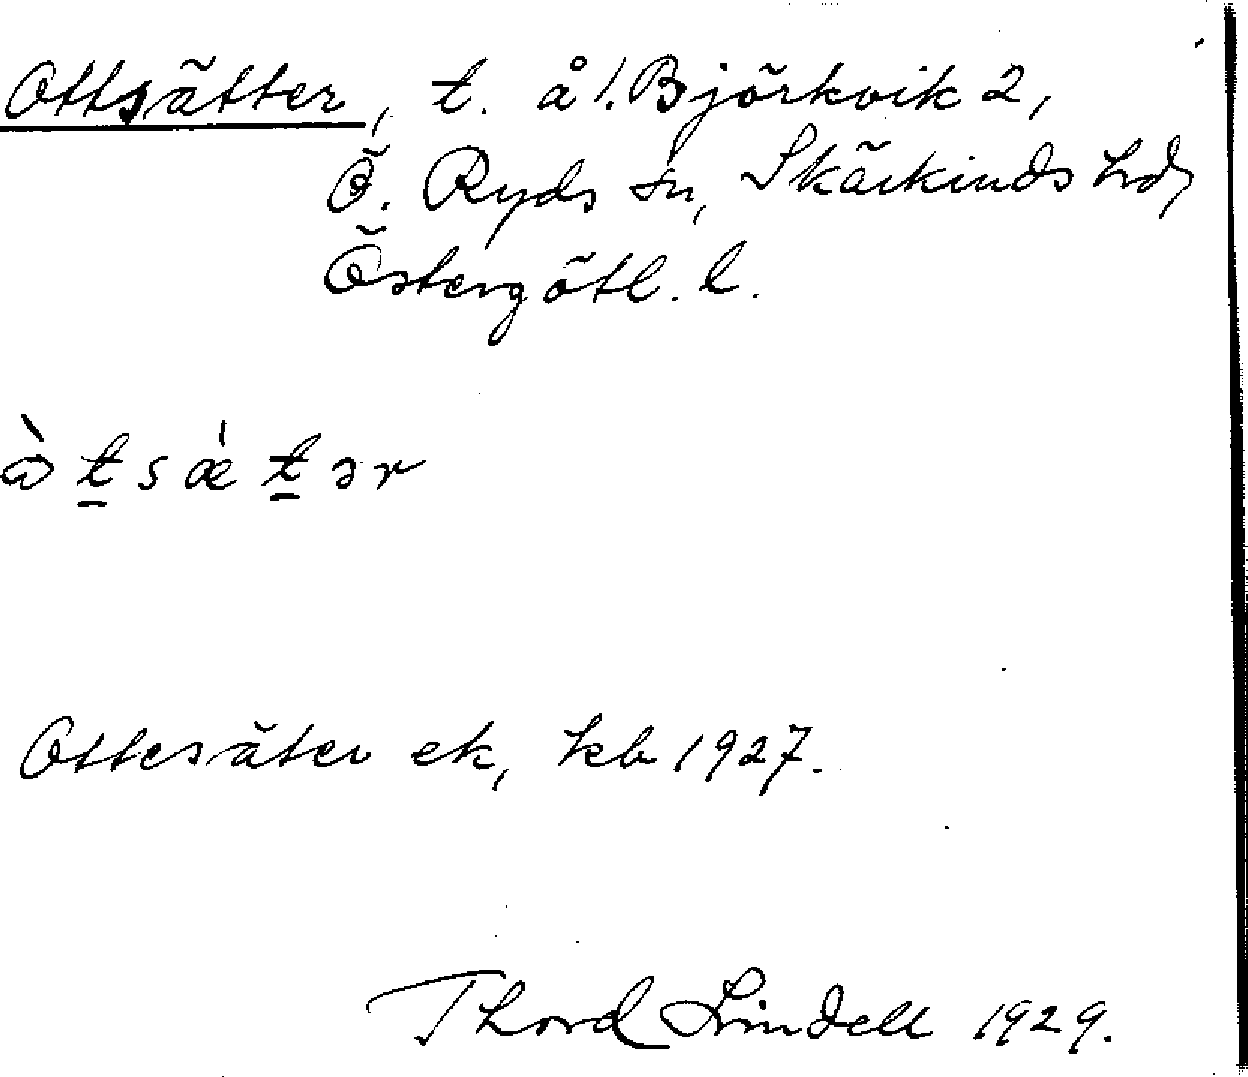 Ottsätter, t. å l. Björkvik 2,
Ö. Ryds sn, Skärkinds hd,
Östergötl. l.
ɷ̀ t̲ s ǽ t̲ ə r
Ottesäter ek, kb 1927.
Thord Lindell 1929.